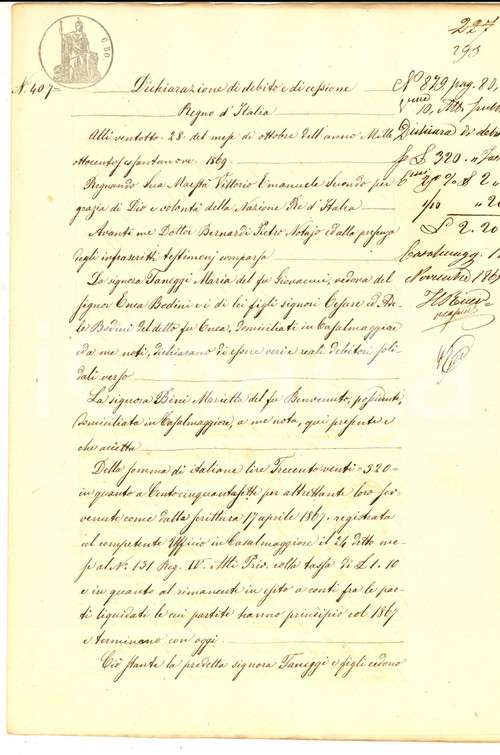 227
293
C. 50
N. 407=
Dichiarazione di debito e di cessione
Regno d'Italia
Alli ventotto = 28 = del mese di ottobre dell'anno Mille
ottocento sessantanove 1869.
Regnando Sua Maestà Vittorio Emanuele Secondo per
grazia di Dio e volontà della Nazione Re d'Italia
Avanti me Dottor Bernardi Pietro Notajo ed alla presenza
degli infrascritti testimonj comparsa
La signora Taneggi Maria del fu Giovanni, vedova del
signor Enea Bodini e i di lei figli signori Cesare ed Ade
le Bodini del detto fu Enea, domiciliati in Casalmaggiore
e da me noti, dichiarano di essere veri e reali debitori soli
dali verso
La signora Bini Marietta del fu Benvenuto, possidente,
domiciliata in Casalmaggiore, a me nota, qui presente e
che accetta
Della somma di italiane lire Trecento venti = 320 =
in quanto a Centocinquantasette per altrettante loro sov
venute come dalla scrittura 17 aprile 1867. registrata
al competente Ufficio in Casalmaggiore il 24 detto me
se al N.° 151 Reg. IV. Atti Priv. colla tassa di £ 1. 10
e in quanto al rimanente in esito a conti fra le par
ti liquidati le cui partite hanno principio col 1867
e terminano con oggi.
Ciò stante la predetta signora Taneggi e figli cedono
N° 879. pag. 80,
10, Atti pub
£ 320.
£ 2. 20
Casalmagg.
Novembre 186